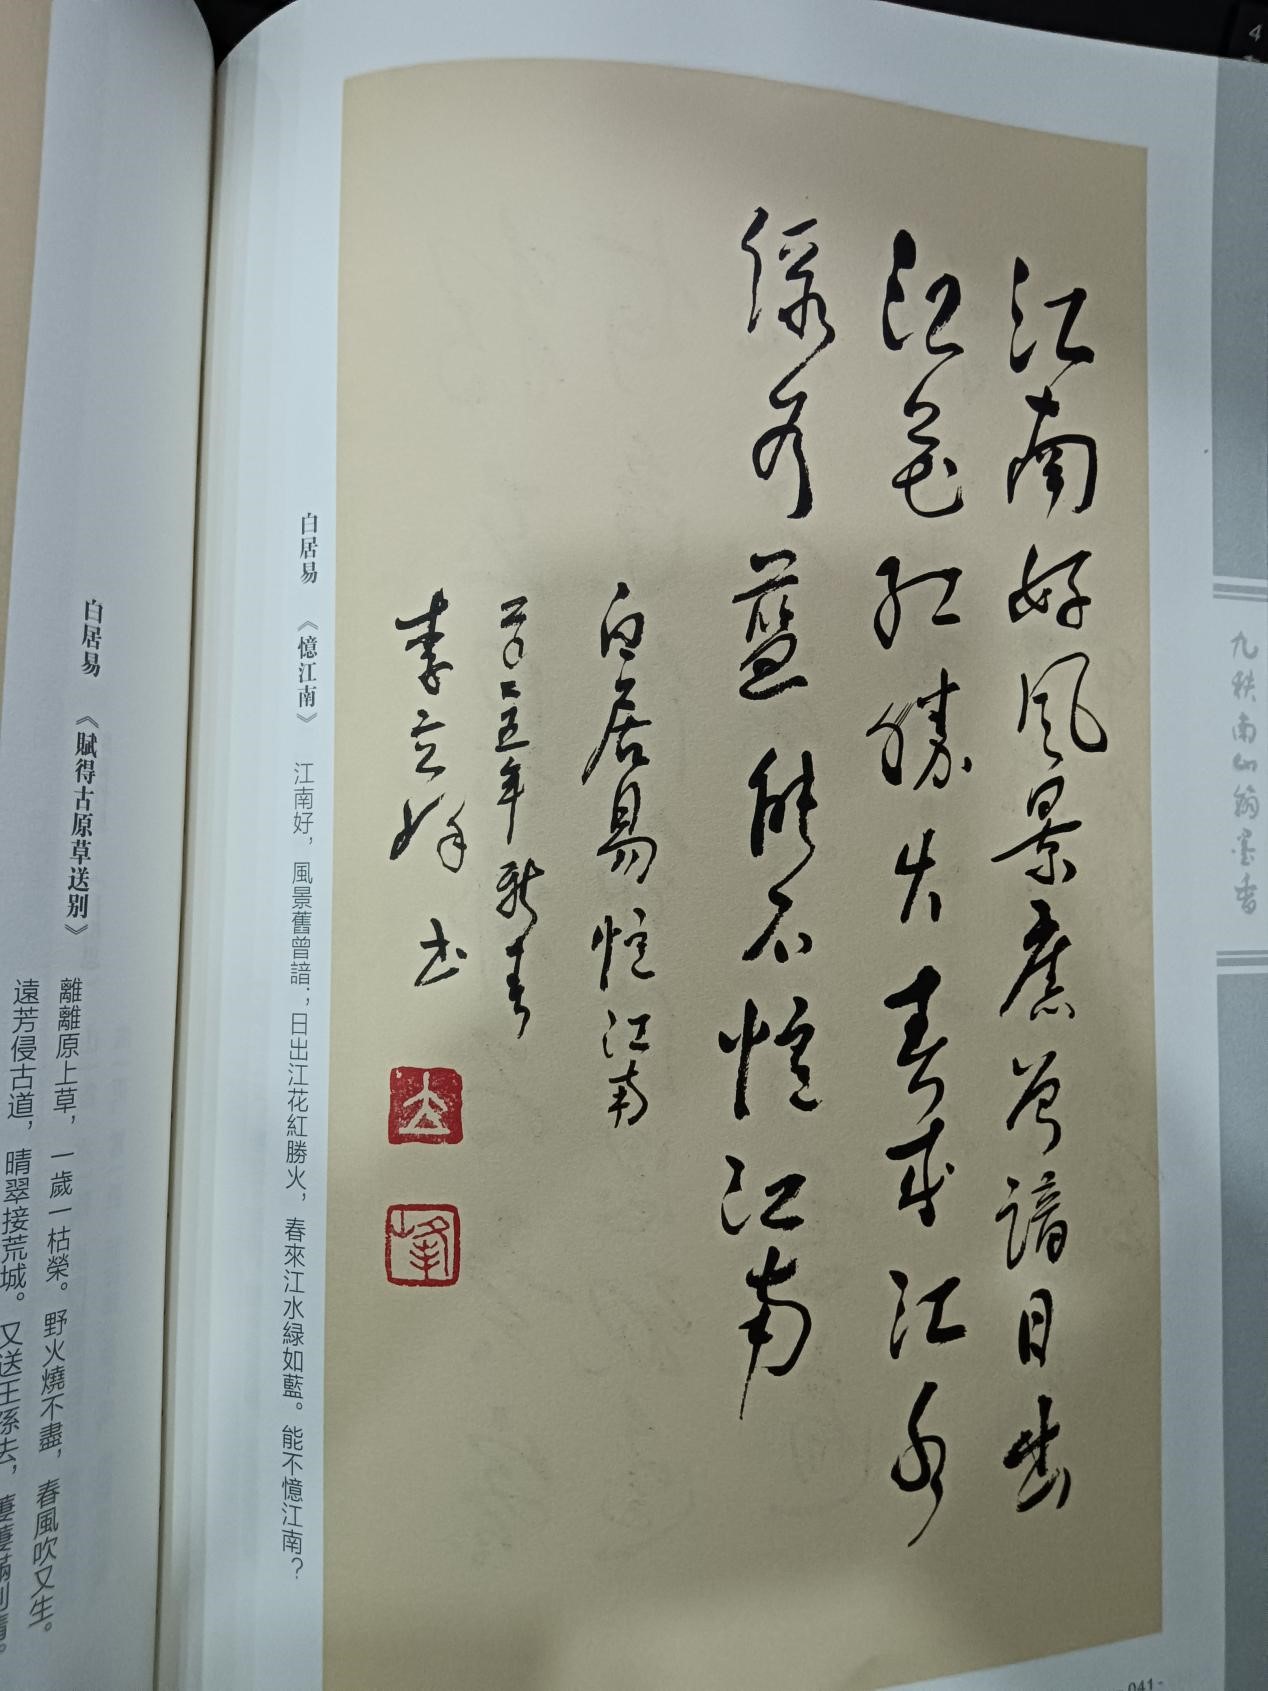 江南好風景舊曾諳日出
江花紅勝火春來江水
綠如藍能不憶江南
白居易憶江南
二〇一五年新春
李立祥书
白居易 《憶江南》 江南好，風景舊曾諳；日出江花紅勝火，春來江水緑如藍。能不憶江南？
白居易 《賦得古原草送别》
離離原上草，一歲一枯榮。野火燒不盡，春風吹又生。
遠芳侵古道，晴翠接荒城。又送王孫去，萋萋滿别情。
九秩南山翰墨香
041
4